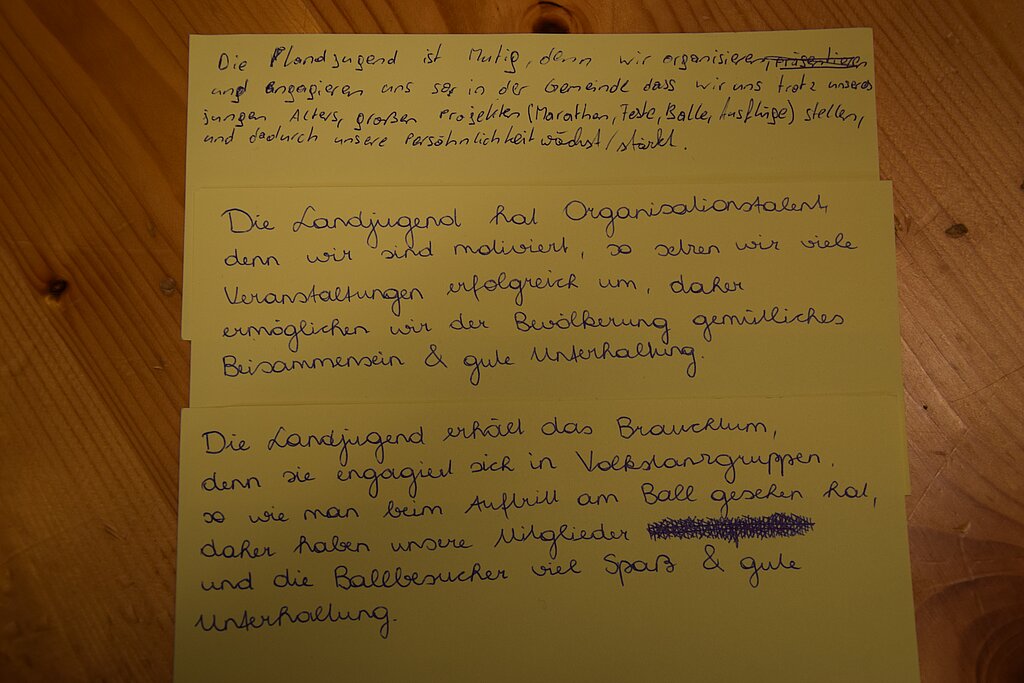 Die Landjugend ist Mutig, denn wir organisieren, präsentieren
und engagieren uns so in der Gemeinde dass wir uns trotz unseres
jungen Alters, großen Projekten (Marathon, Feste, Bälle, Ausflüge) stellen,
und dadurch unsere Persöhnlichkeit wächst/stärkt.
Die Landjugend hat Organisationstalent,
denn wir sind motiviert, so setzen wir viele
Veranstaltungen erfolgreich um, daher
ermöglichen wir der Bevölkerung gemütliches
Beisammensein & gute Unterhaltung.
Die Landjugend erhält das Brauchtum,
denn sie engagiert sich in Volkstanzgruppen,
so wie man beim Auftritt am Ball gesehen hat,
daher haben unsere Mitglieder
und die Ballbesucher viel Spaß & gute
Unterhaltung.